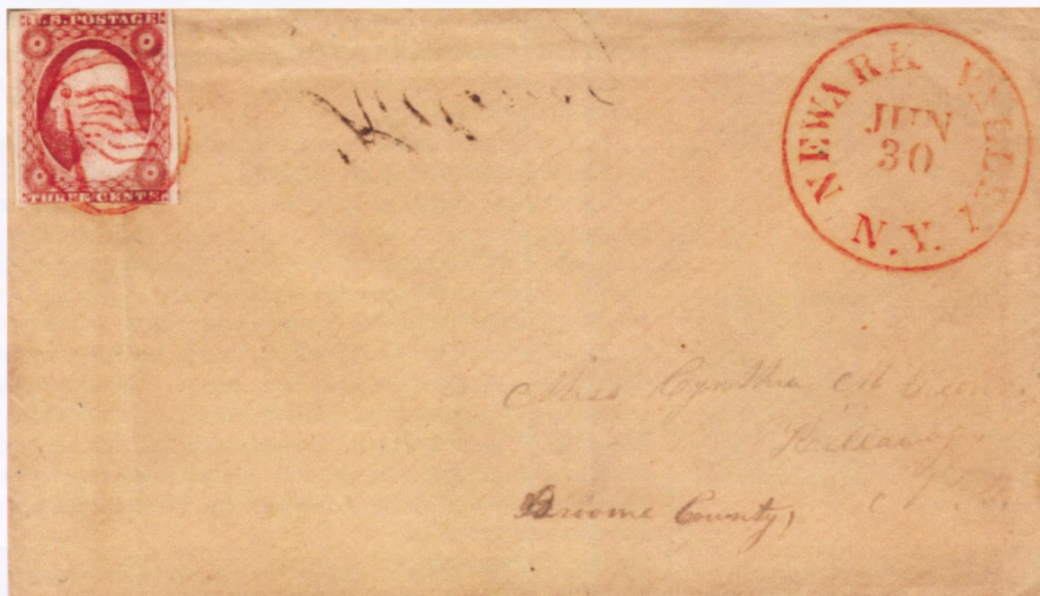 U.S. POSTAGE
THREE CENTS
NEWARK VALLEY
N.Y.
JUN
30
Miss Cynthia M
Killawog
Broome County,